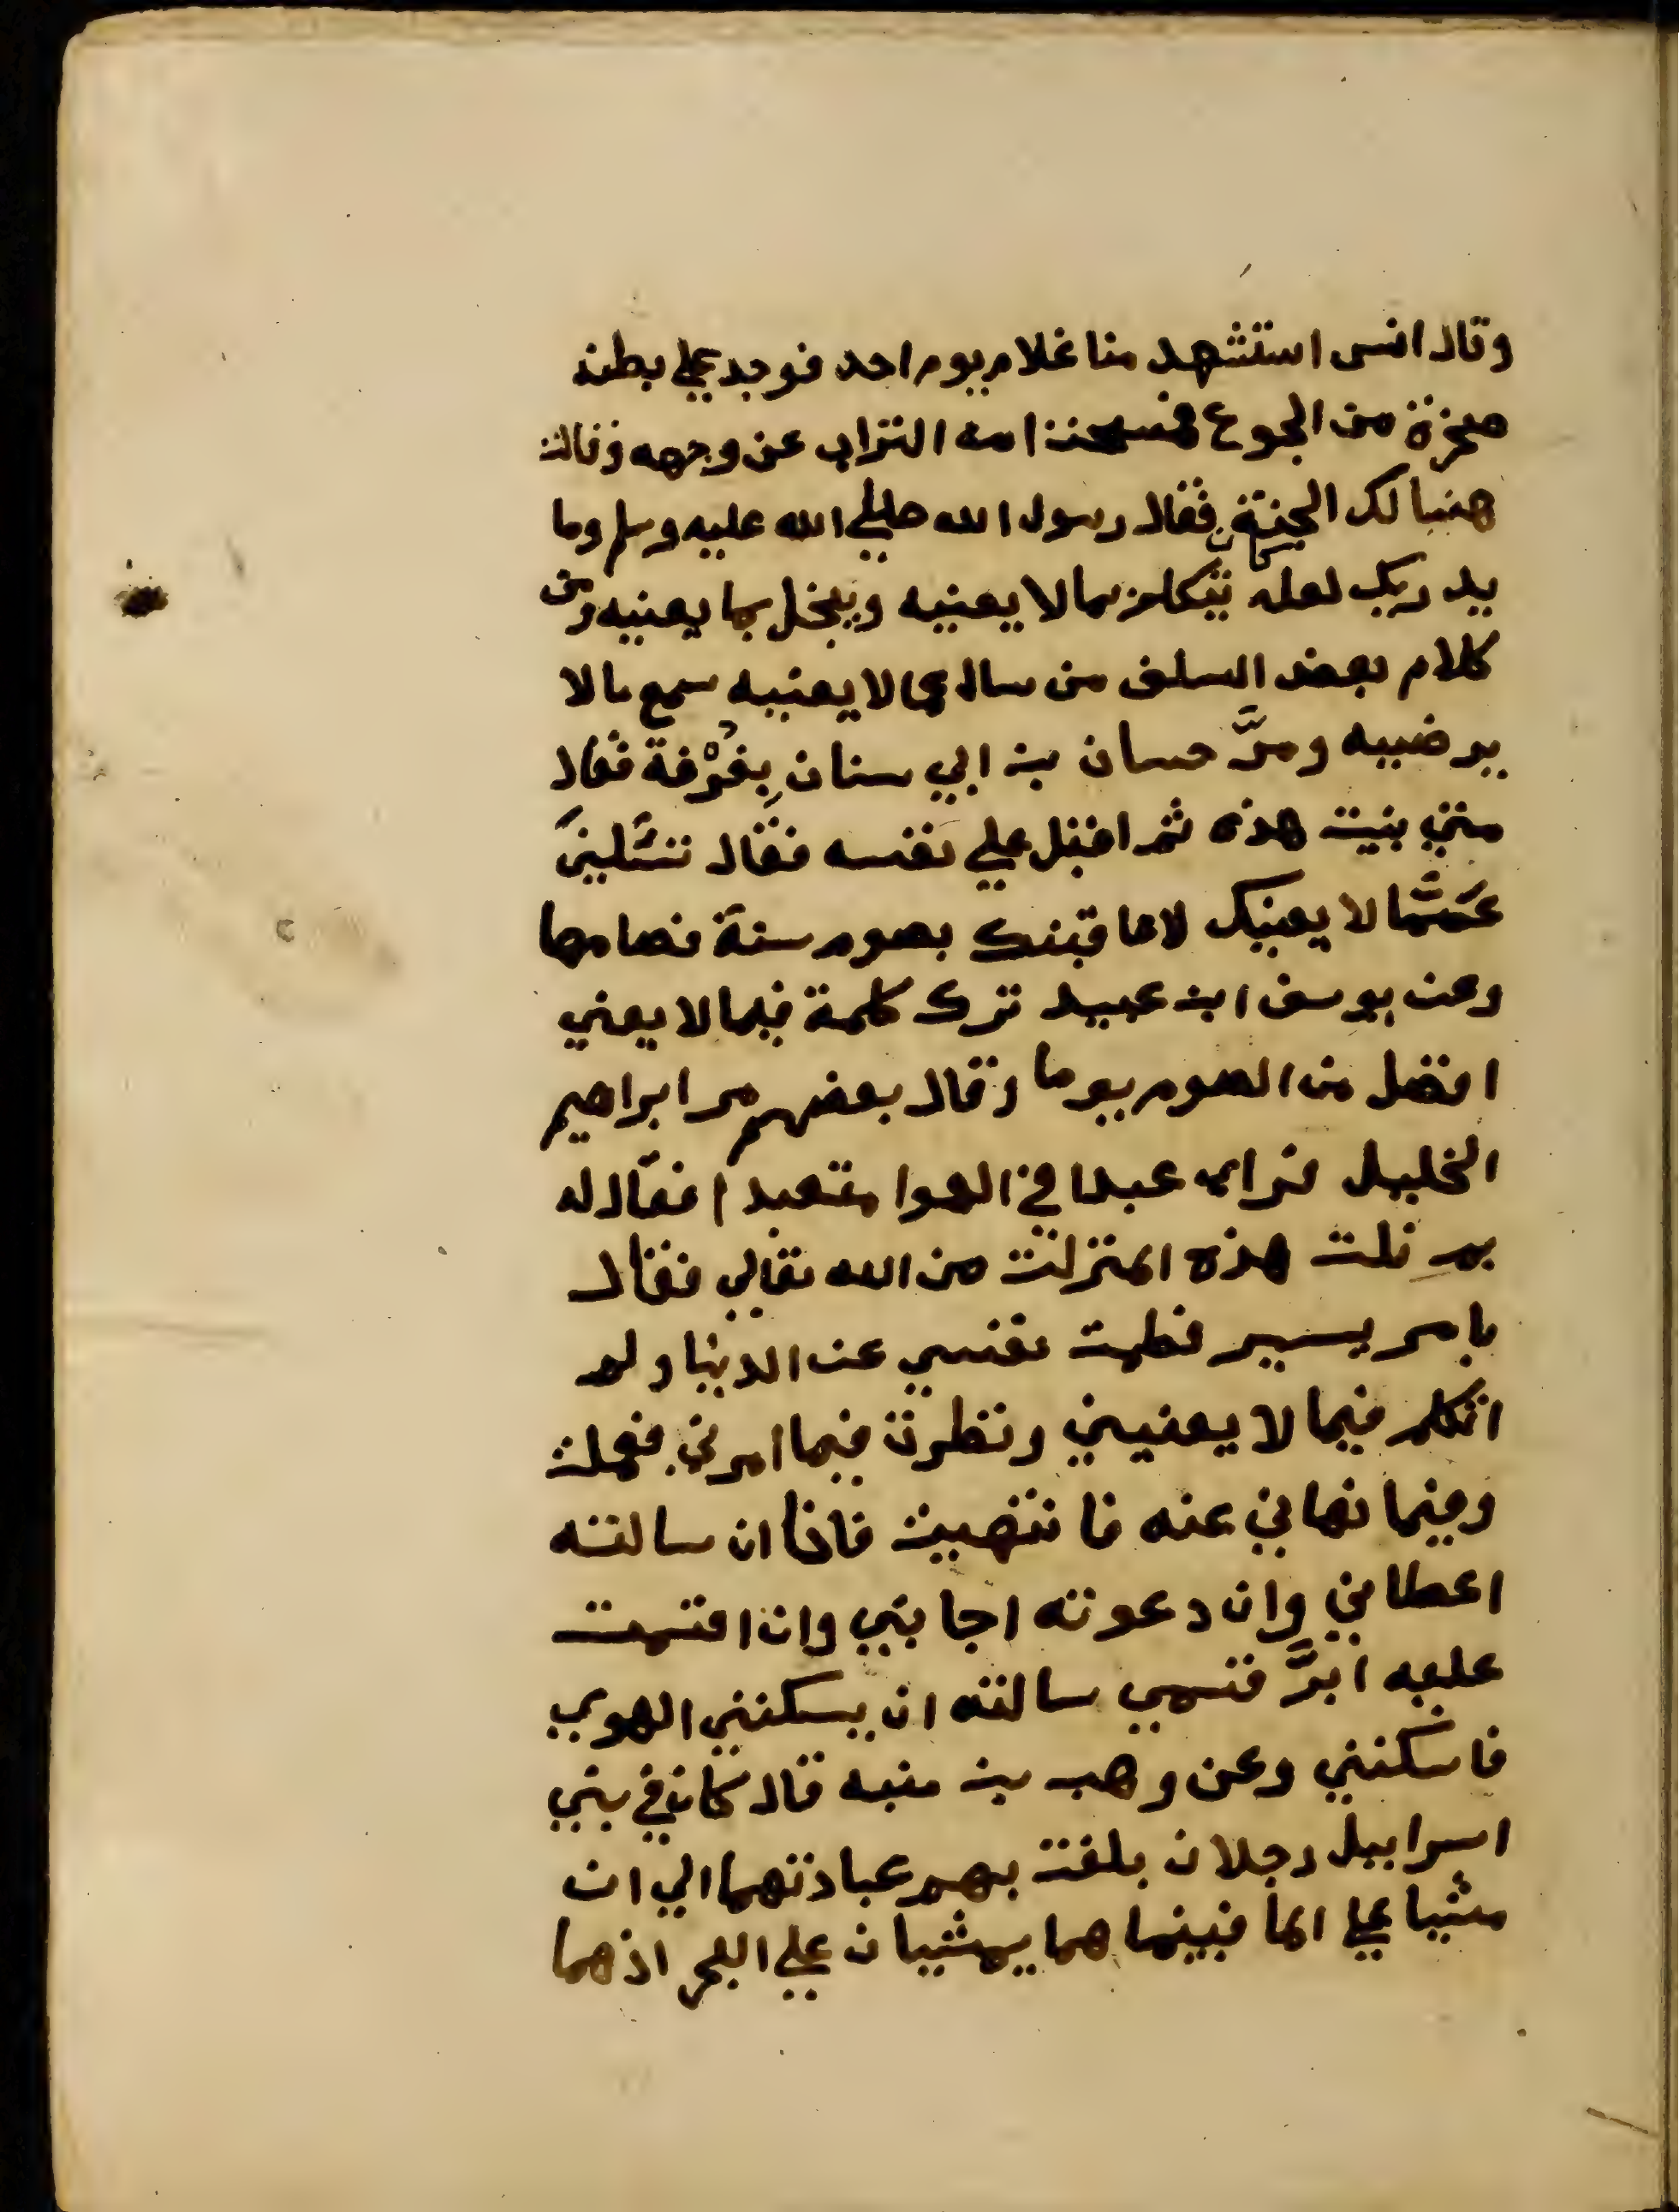 وقال انس استشهد منا غلام يوم احد فوجد علي بطنه
صخرة من الجوع فمسحت امه التراب عن وجهه وقالت
هنيا لك الجنة فقال رسول الله صلي الله عليه وسلم وما
يدريك لعله كان يتكلم بما لا يعنيه ويبخل بما يعنيه ومن
كلام بعض السلف من سال عما لا يعنيه سمع ما لا
يرضيه ومرَّ حسان بن ابي سنان بِغُرْفة فقال
متي بنيت هذه ثم اقبل علي نفسه فقال تسئلينَ
عَمَّا لا يعنيك لاعاقبنك بصوم سنة فصامها
وعن يوسف ابن عبيد ترك كلمة فيما لا يعني
افضل من الصوم يوما وقال بعضهم مر ابراهيم
الخليل فراي عبدا في الهوا متعبدا فقال له
بم نلت هذه المنزلت من الله تعالي فقال
بامر يسير فطمت نفسي عن الدنيا ولم
اتكلم فيما لا يعنيني ونظرت فيما امرني فعملت
وفيما نهاني عنه فانتهيت فانا ان سالته
اعطاني وان دعوته اجابني وان اقسمت
عليه ابرَّ قسمي سالته ان يسكنني الهوي
فاسكنني وعن وهب بن منبه قال كان في بني
اسراييل رجلان بلغت بهم عبادتهما الي ان
مشيا علي الما فبينما هما يمشيان علي البحر اذ هما